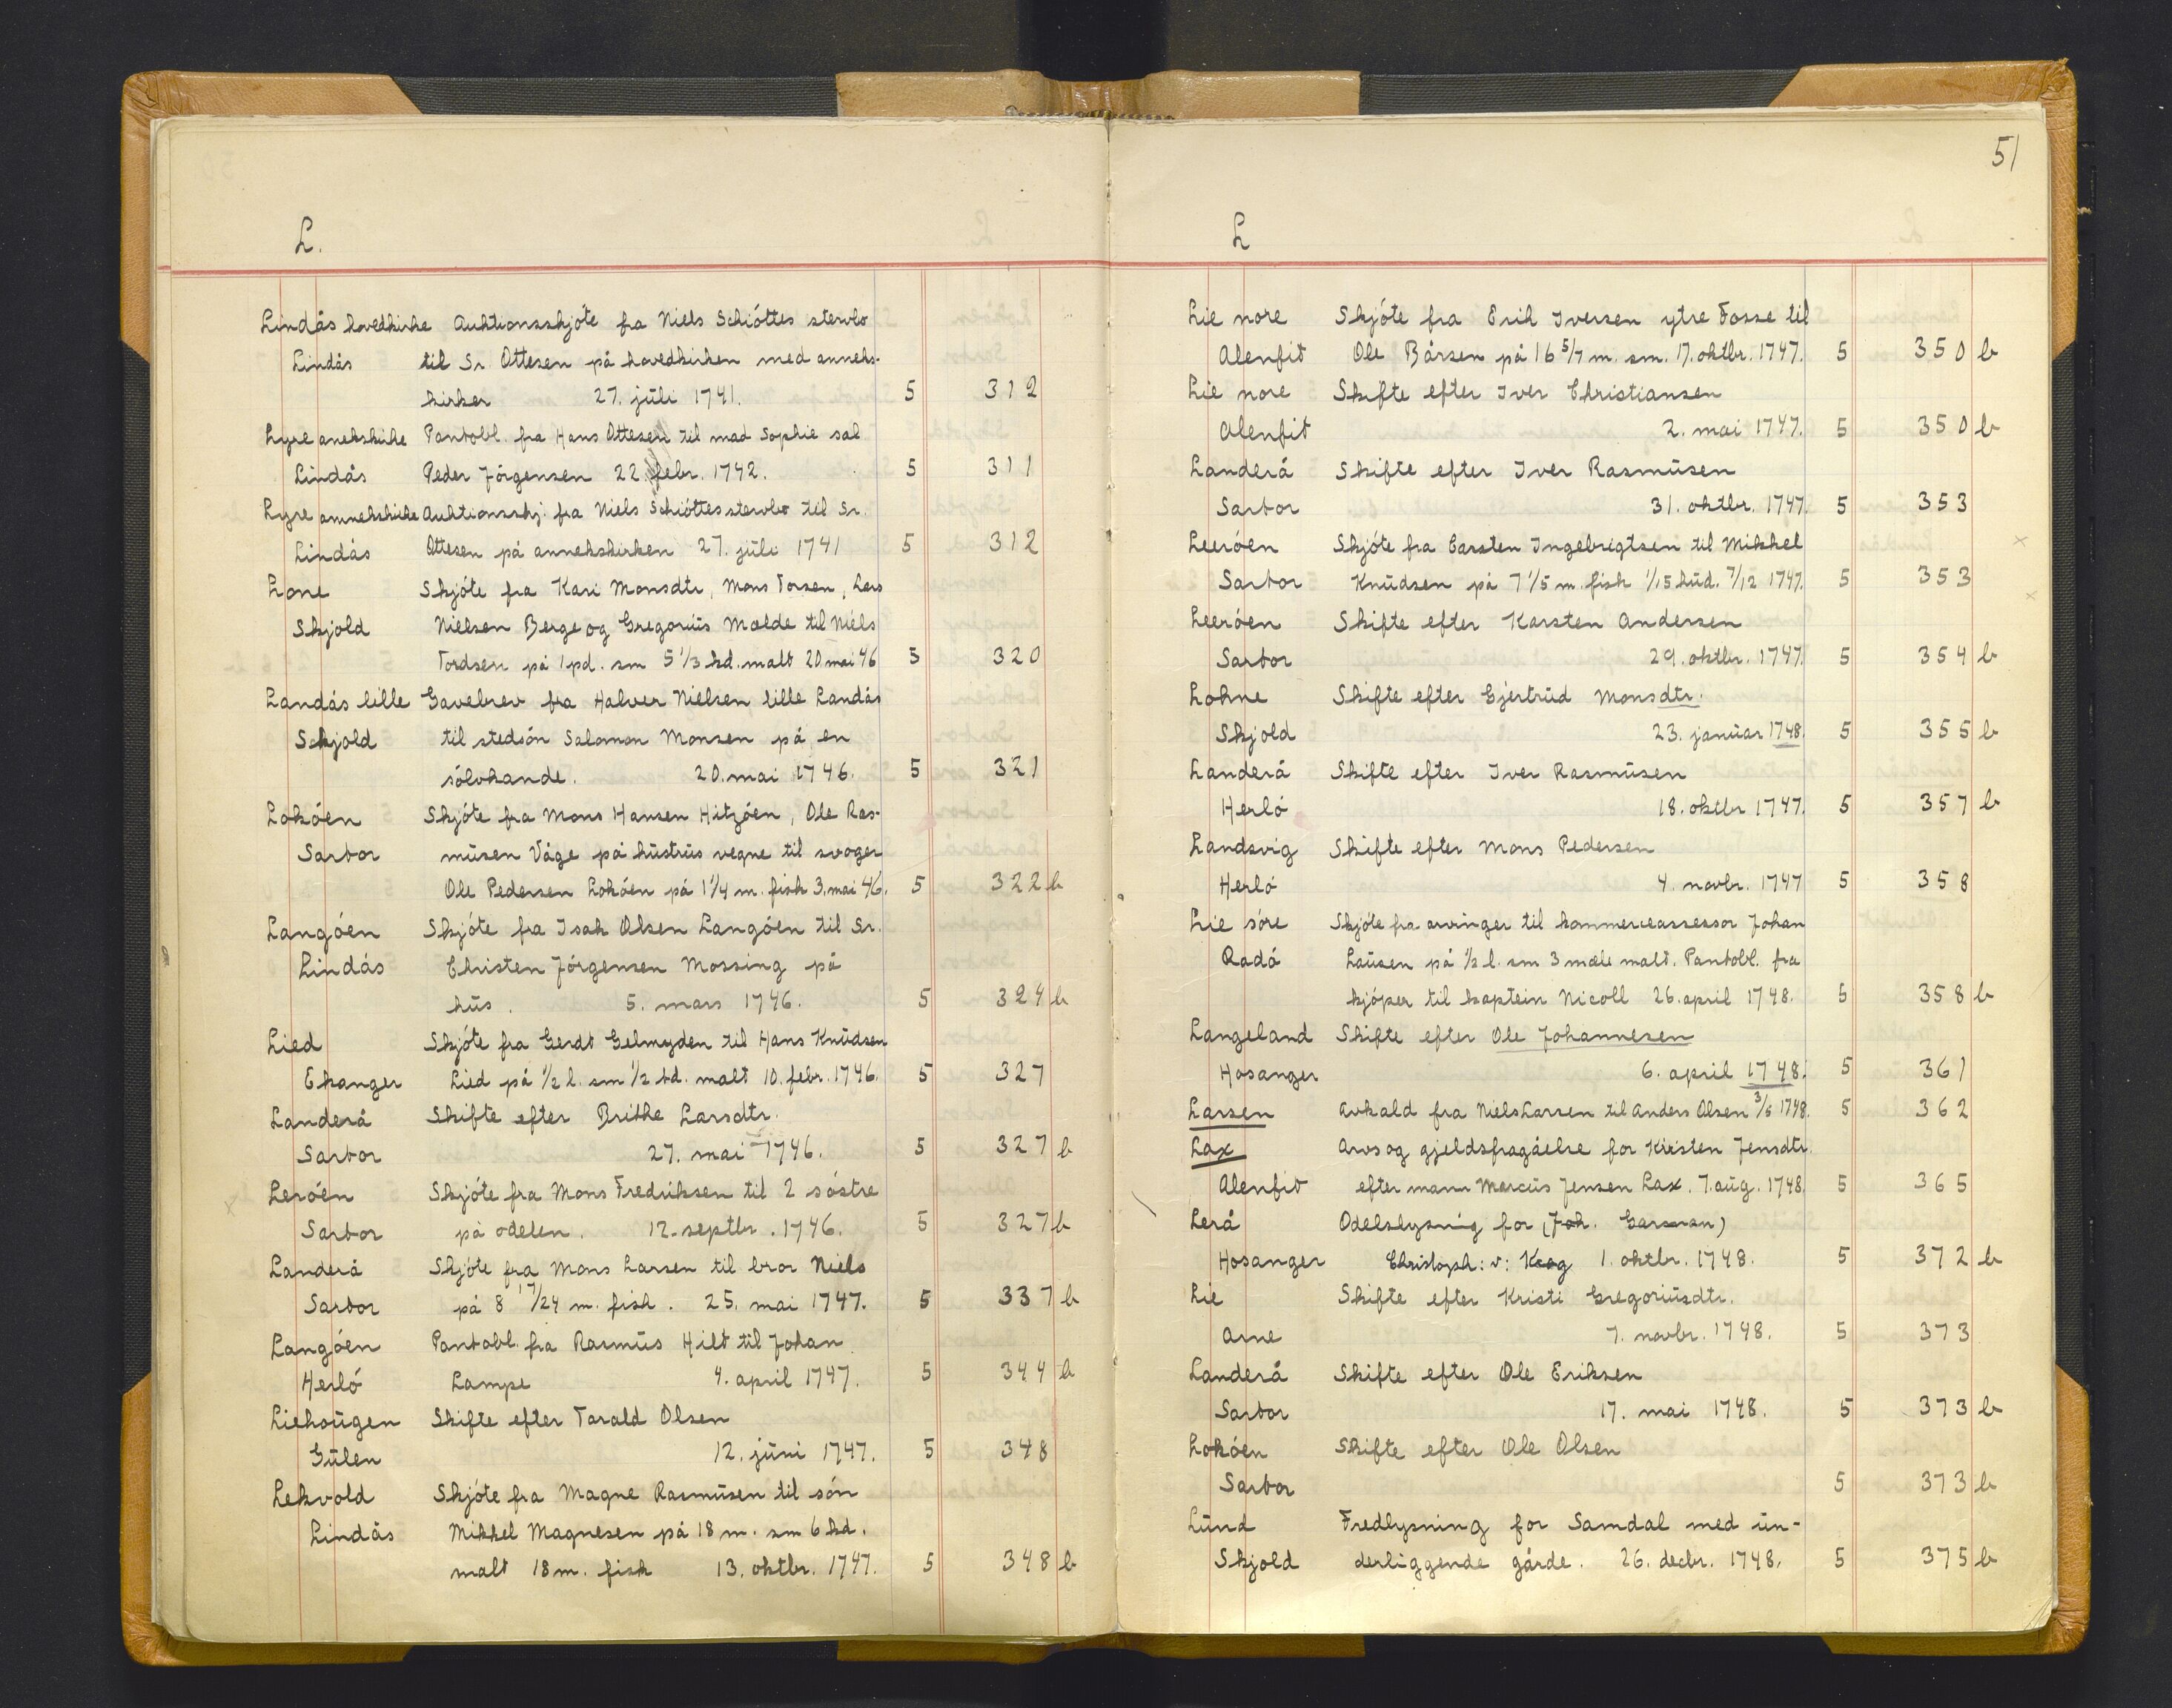 L.
Lindås hovedkirke Auktionsskjóte fra Niels Schióttes stervbo
Lindås til Sr. Ottesen på hovedkirken med anneks-
kirker 27. júli 1741. 5 312
Lyre anekskirke Pantobl. fra Hans Ottesen til mad Sophie sal
Lindås Peder Jórgensen 22. febr. 1742. 5 311
Lyre annekskirke Auktionsskj. fra Niels Schióttes stervbo til Sr.
Lindås Ottesen på annekskirken 27. júli 1741 5 312
Lone Skjóte fra Kari Monsdtr, Mons Torsen, Lars
Skjold Nielsen Berge og Gregoriús Mælde til Niels
Tordsen på 1 pd. sm 5 1/3 kd. malt 20 mai 46 5 320
Landås lille Gavebrev fra Halver Nielsen lille Landås
Schjold til stedsón Salomon Monsen på en
sólvkande. 20. mai 1746. 5 321
Lokóen Skjóte fra Mons Hansen Hitzóen, Ole Ras-
Sartor músen Våge på hústrús vegne til svoger
Ole Pedersen Lokóen på 1 1/4 m. fisk 3. mai 46. 5 322 b
Langóen Skjóte fra Isak Olsen Langóen til Sr.
Lindås Christen Jórgensen Mossing på
hús. 5. mars 1746. 5 324 b
Lied Skjóte fra Gerdt Gelmyden til Hans Knúdsen
Ekanger Lied på 1/2 l. sm 1/2 td. malt 10. febr. 1746. 5 327
Landerå Skifte efter Brithe Larsdtr.
Sartor 27. mai 1746. 5 327 b
Leróen Skjóte fra Mons Fredriksen til 2 sóstre
Sartor på odelen. 12. septbr. 1746. 5 327 b
Landerå Skjóte fra Mons Larsen til bror Niels
Sartor på 8 17/24 m. fisk. 25. mai 1747. 5 337 b
Langóen Pantobl. fra Rasmús Hilt til Johan
Herló Lampe 4. april 1747. 5 344 b
Liehoúgen Skifte efter Torald Olsen
Gúlen 12. júni 1747. 5 348
Lekvold Skjóte fra Magne Rasmúsen til són
Lindås Mikkel Magnesen på 18 m. sm 6 kd.
malt 18 m. fisk 13. oktbr. 1747. 5 348 b
51
L
Lie nore Skjóte fra Erik Iversen ytre Fosse til
Alenfit Ole Bårsen på 16 5/7 m. sm. 17. oktbr. 1747. 5 350 b
Lie nore Skifte efter Iver Christiansen
Alenfit 2. mai 1747. 5 350 b
Landerå Skifte efter Iver Rasmúsen
Sartor 31. oktbr. 1747. 5 353
Leeróen Skjóte fra Carsten Ingebrigtsen til Mikkel
Sartor Knúdsen på 7 1/5 m. fisk 1/15 húd. 7/12 1747. 5 353
Leeróen Skifte efter Karsten Andersen
Sartor 29. oktbr. 1747. 5 354 b
Lohne Skifte efter Gjertrúd Monsdtr.
Skjold 23. janúar 1748. 5 355 b
Landerå Skifte efter Iver Rasmúsen
Herló 18. oktbr 1747. 5 357 b
Landsvig Skifte efter Mons Pedersen
Herló 4. novbr. 1747 5 358
Lie sóre Skjóte fra arvinger til kommerceassessor Johan
Radó Laúsen på 1/2 l. sm 3 mæle malt. Pantobl. fra
kjóper til kaptein Nicoll 26. april 1748. 5 358 b
Langeland Skifte efter Ole Johannesen
Hosanger 6. april 1748. 5 361
Larsen Avkald fra Niels Larsen til Anders Olsen 3/5 1748. 5 362
Lax Arvs og gjeldsfragåelse for Kirsten Jensdtr.
Alenfit efter mann Marcús Jensen Lax. 7. aúg. 1748. 5 365
Lerå Odelslysnig for (Joh. Garman)
Hosanger Christoph: v: Krog 1. oktbr. 1748. 5 372 b
Lie Skifte efter Kristi Gregoriúsdtr.
Arne 7. novbr. 1748. 5 373
Landerå Skifte efter Ole Eriksen
Sartor 17. mai 1748. 5 373 b
Lokóen Skifte efter Ole Olsen
Sartor 5 373 b
Lúnd Fredlysning for Samdal med ún-
Skjold derliggende gårde. 26. decbr. 1748. 5 375 b